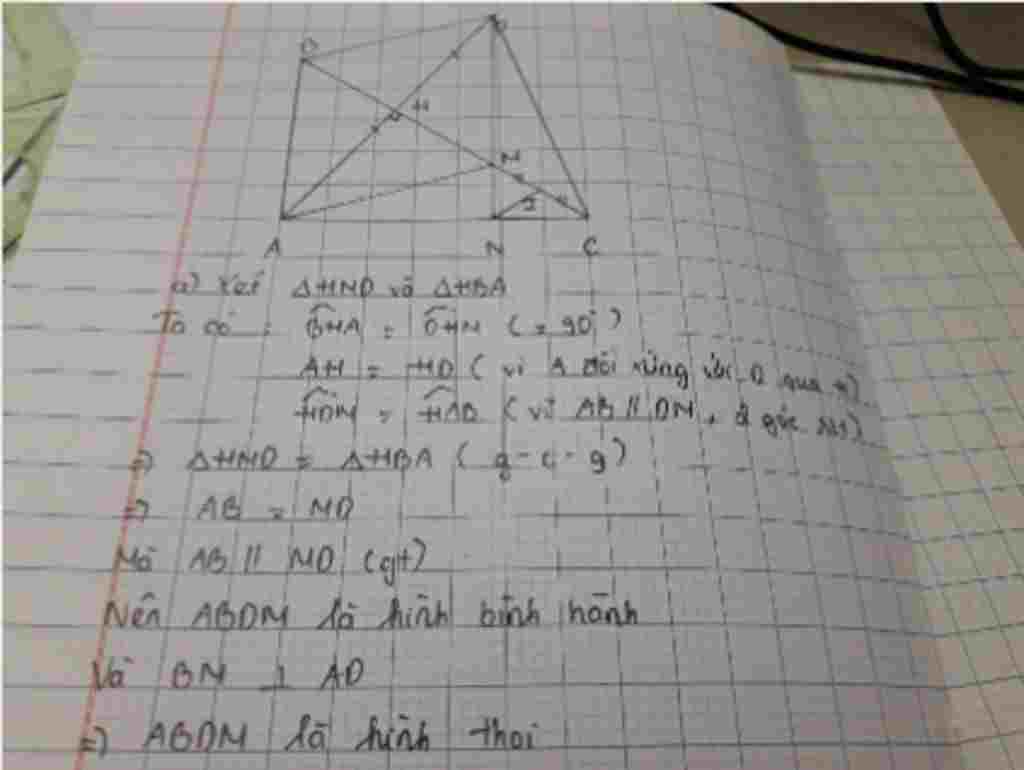 B D
H
M
I
A N C
a) Xét ΔHMD và ΔHBA
Ta có : BHA = DHM ( = 90° )
AH = HD ( vì A đối xứng với D qua H)
HDM = HAB ( vì AB // DM , 2 góc slt)
=> ΔHMD = ΔHBA ( g - c - g )
=> AB = MD
Mà AB // MD (gt)
Nên ABDM là hình bình hành
Và BM ⊥ AD
=> ABDM là hình thoi